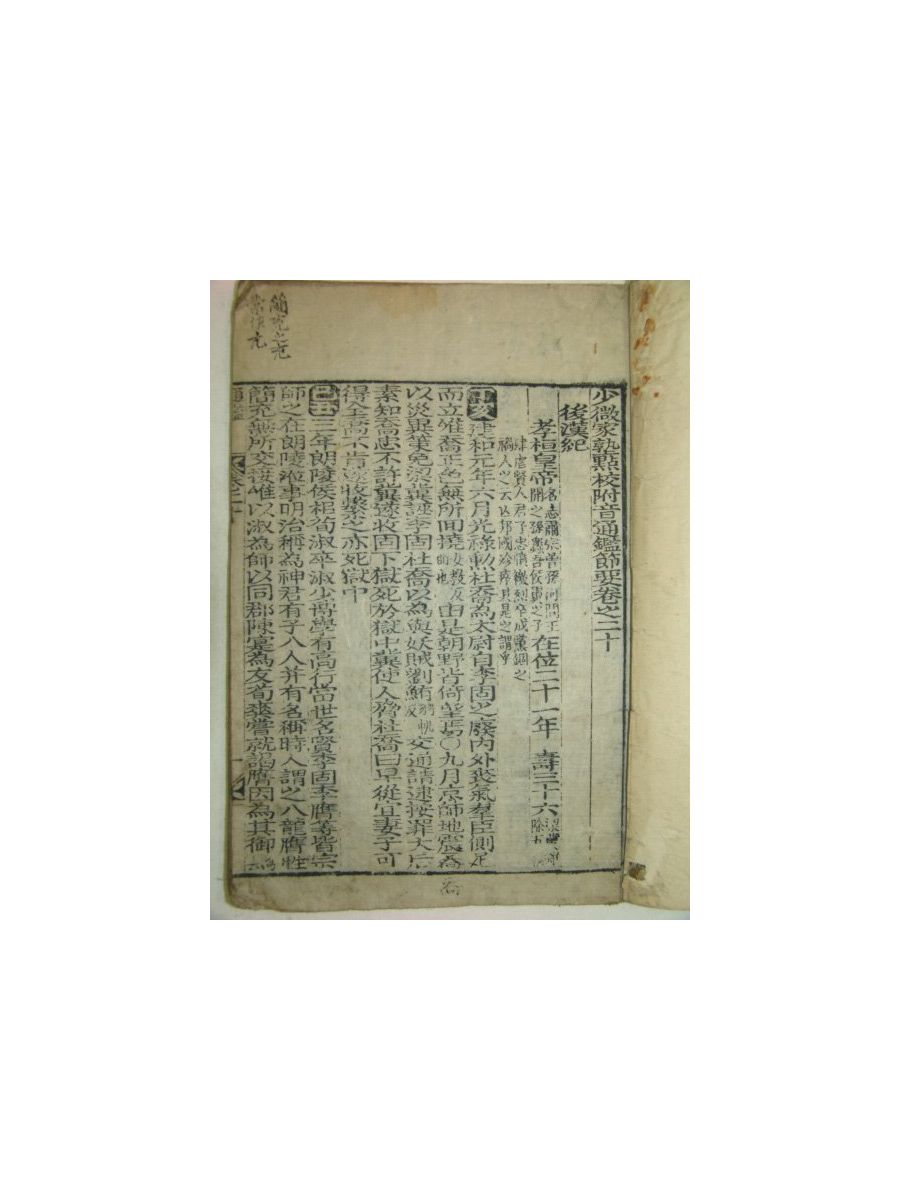 少微家塾點校附音通鑑節要卷之二十
後漢紀
孝桓皇帝 名志肅宗曾孫河間王開之孫蠡吾侯翼之子 在位二十一年 壽三十六
肆虐賢人君子忠憤激烈卒成黨錮之禍人之云亡邦國殄瘁其是之謂乎
丁亥 建和元年六月光祿勳杜喬為太尉自李固之廢內外喪氣羣臣側足
而立唯喬正色無所回撓 由是朝野皆倚望焉○九月京師地震為
以災異策免梁冀誣李固杜喬以為與妖賊劉鮪 交通請逮按罪太后
素知喬忠不許冀遂收固下獄死於獄中冀使人脅杜喬曰早從宜妻子可
得全喬不肯遂收繫之亦死獄中
己丑 三年朗陵侯相荀淑卒淑少博學有高行當世名賢李固李膺等皆宗
師之在朗陵涖事明治稱為神君有子八人并有名稱時人謂之八龍膺性
簡亢無所交接唯以淑為師以同郡陳寔為友荀爽嘗就謁膺因為其御
通鑑 卷之二十 一
簡亢之亢
當作亢